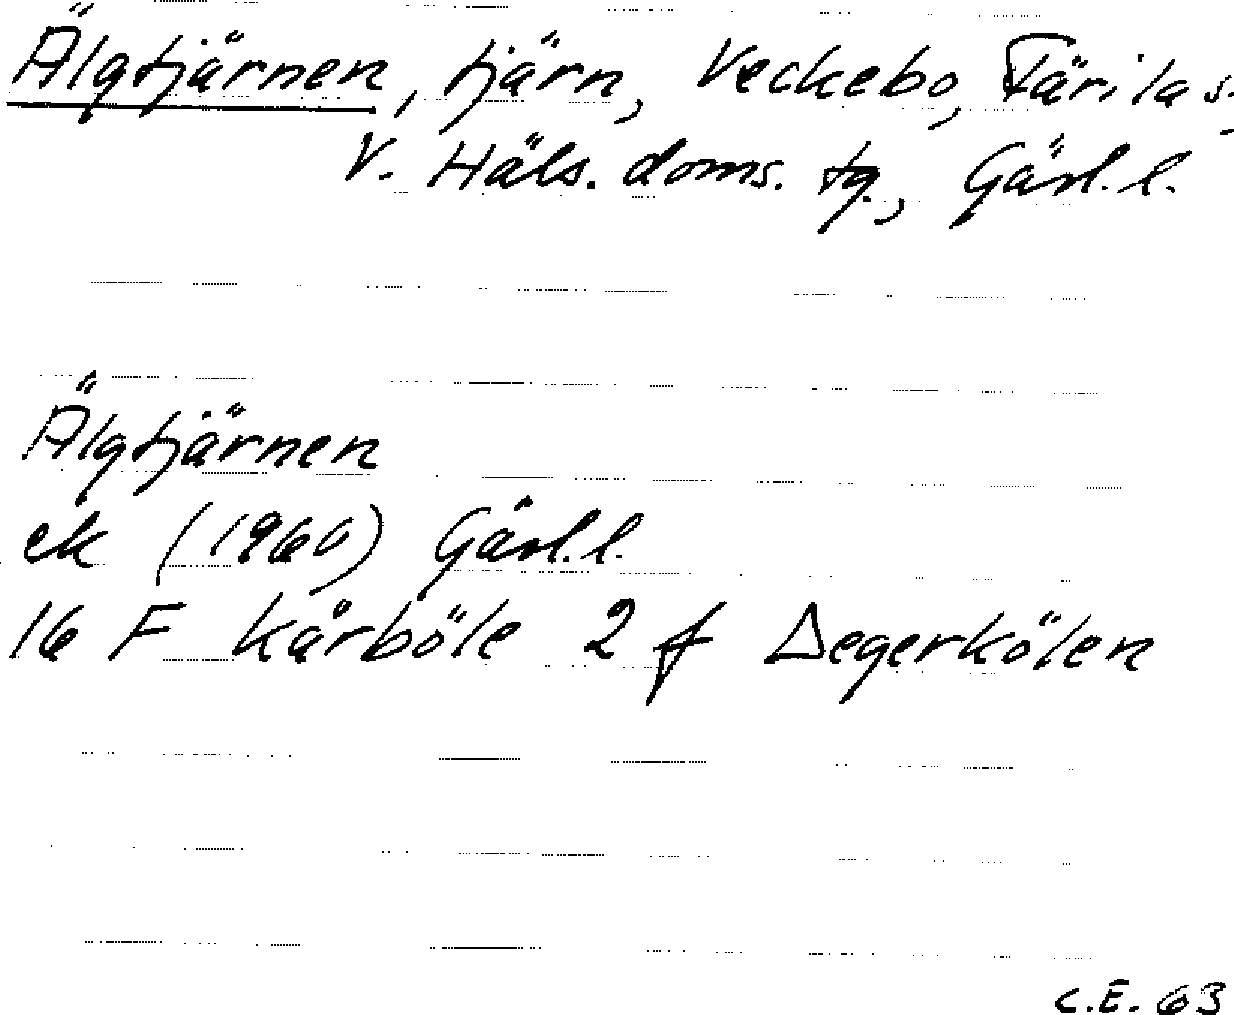 Älgtjärnen, tjärn, Veckebo, Färila s.,
V. Häls. doms. tg., Gävl. l.
Älgtjärnen
ek (1960) Gävl. l.
16 F Kårböle 2 f Degerkölen
C.E. 63